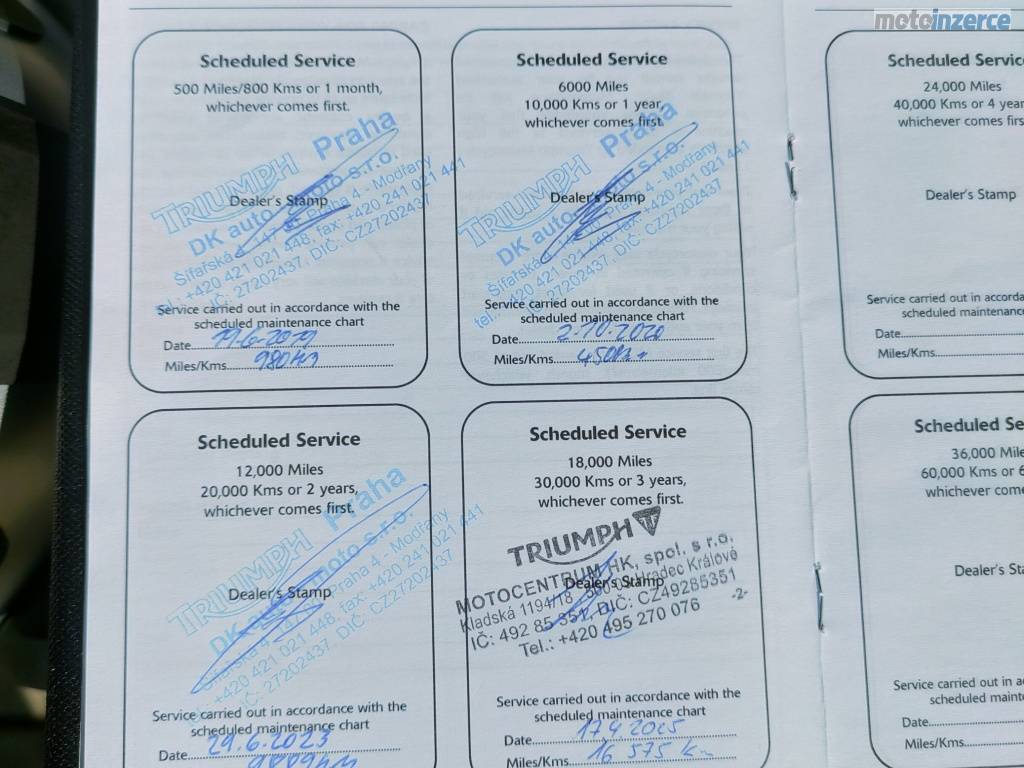 motoinzerce
Scheduled Service
500 Miles/800 Kms or 1 month,
whichever comes first.
TRIUMPH Praha
DK auto-moto s.r.o.
Praha 4 - Modřany
tel.: +420 421 021 448, fax: +420 241 021 441
IČ: 27202437, DIČ: CZ27202437
Dealer's Stamp
Service carried out in accordance with the
scheduled maintenance chart
Date 19-6-2019
Miles/Kms 980
Scheduled Service
6000 Miles
10,000 Kms or 1 year,
whichever comes first.
TRIUMPH Praha
DK auto-moto s.r.o.
Praha 4 - Modřany
tel.: +420 421 021 448, fax: +420 241 021 441
IČ: 27202437, DIČ: CZ27202437
Dealer's Stamp
Service carried out in accordance with the
scheduled maintenance chart
Date 2.10.2020
Miles/Kms
Scheduled Service
12,000 Miles
20,000 Kms or 2 years,
whichever comes first.
TRIUMPH Praha
DK auto-moto s.r.o.
Praha 4 - Modřany
+420 421 021 448, fax: +420 241 021 441
IČ: 27202437, DIČ: CZ27202437
Dealer's Stamp
Service carried out in accordance with the
scheduled maintenance chart
Date 29.6.2023
Scheduled Service
18,000 Miles
30,000 Kms or 3 years,
whichever comes first.
TRIUMPH
MOTOCENTRUM HK, spol. s r.o.
Kladská 1194/18 Hradec Králové
IČ: 492 85 351, DIČ: CZ49285351
Tel.: +420 495 270 076
-2-
Dealer's Stamp
Service carried out in accordance with the
scheduled maintenance chart
Date 17.4.2025
Miles/Kms 16 575 km
Scheduled Servic
24,000 Miles
40,000 Kms or 4 year
whichever comes firs
Dealer's Stamp
Service carried out in accorda
scheduled maintenance
Date
Miles/Kms
Scheduled Se
36,000 Mile
60,000 Kms or 6
whichever come
Dealer's Sta
Service carried out in a
scheduled maint
Date
Miles/Kms